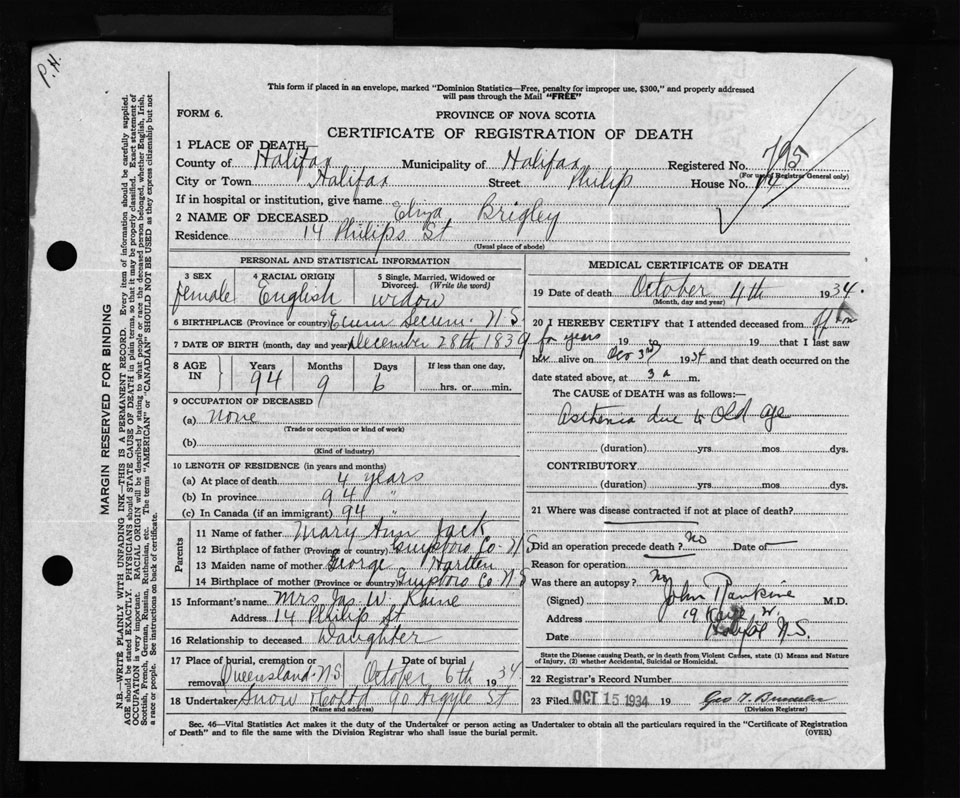 P.H.
This form if placed in an envelope, marked "Dominion Statistics—Free, penalty for improper use, $300," and properly addressed
will pass through the Mail "FREE"
FORM 6.
PROVINCE OF NOVA SCOTIA
CERTIFICATE OF REGISTRATION OF DEATH
1 PLACE OF DEATH
County of Halifax Municipality of Halifax Registered No. 795
(For use of Registrar General only)
City or Town Halifax Street Philip House No. 14
If in hospital or institution, give name
2 NAME OF DECEASED Eliza Brigley
Residence 14 Philips St
(Usual place of abode)
PERSONAL AND STATISTICAL INFORMATION
3 SEX female
4 RACIAL ORIGIN English
5 Single, Married, Widowed or Divorced. (Write the word) widow
6 BIRTHPLACE (Province or country) Ecum Secum. N.S.
7 DATE OF BIRTH (month, day and year) December 28th 1839
8 AGE IN Years 94 Months 9 Days 6 If less than one day. hrs. or min.
9 OCCUPATION OF DECEASED
(a) None
(Trade or occupation or kind of work)
(b)
(Kind of industry)
10 LENGTH OF RESIDENCE (in years and months)
(a) At place of death 4 years
(b) In province 94 "
(c) In Canada (if an immigrant) 94 "
Parents
11 Name of father Mary Ann Jack
12 Birthplace of father (Province or country) Guysboro Co- N S
13 Maiden name of mother George Hartlen
14 Birthplace of mother (Province or country) Guysboro Co N S
15 Informant's name Mrs Jas. W. Raine
Address 14 Philip St
16 Relationship to deceased Daughter
17 Place of burial, cremation or removal Queensland. N.S. Date of burial October 6th 1934
18 Undertaker Snow & Co Ltd 90 Argyle St
(Name and address)
MEDICAL CERTIFICATE OF DEATH
19 Date of death October 4th 1934.
(Month, day and year)
20 I HEREBY CERTIFY that I attended deceased from off & on
for years 19 to 19 that I last saw
her alive on Oct 3rd 1934 and that death occurred on the
date stated above, at 3 a m.
The CAUSE OF DEATH was as follows:
Asthenia due to Old age
(duration) yrs. mos. dys.
CONTRIBUTORY
(duration) yrs. mos. dys.
21 Where was disease contracted if not at place of death?
Did an operation precede death? No Date of —
Reason for operation
Was there an autopsy? No
(Signed) John Rankine M.D.
Address 19
Date Halifax N.S.
State the Disease causing Death, or in death from Violent Causes, state (1) Means and Nature
of Injury, (2) whether Accidental, Suicidal or Homicidal.
22 Registrar's Record Number
23 Filed OCT 15 1934 19 Geo T.
(Division Registrar)
Sec. 46—Vital Statistics Act makes it the duty of the Undertaker or person acting as Undertaker to obtain all the particulars required in the "Certificate of Registration
of Death" and to file the same with the Division Registrar who shall issue the burial permit.
(OVER)
MARGIN RESERVED FOR BINDING
N.B.—WRITE PLAINLY WITH UNFADING INK—THIS IS A PERMANENT RECORD. Every item of information should be carefully supplied.
AGE should be stated EXACTLY. PHYSICIANS should STATE CAUSE OF DEATH in plain terms, so that it may be properly classified. Exact statement of
OCCUPATION is very important. RACIAL ORIGIN will be described by stating to what people or race the deceased person belonged, whether English, Irish,
Scottish, French, German, Russian, Ruthenian, etc. The terms "AMERICAN" or "CANADIAN" SHOULD NOT BE USED as they express citizenship but not
a race or people. See instructions on back of certificate.